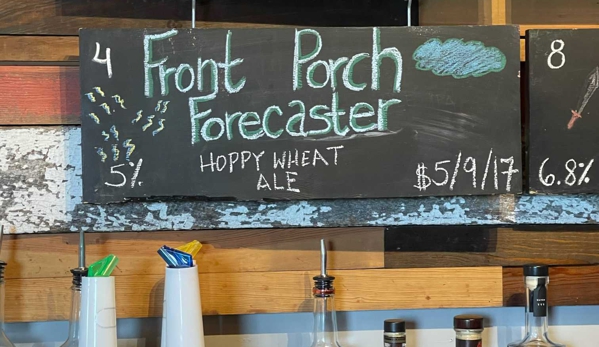 4
Front Porch
Forecaster
HOPPY WHEAT
ALE
5%
$5/9/17
8
6.8%